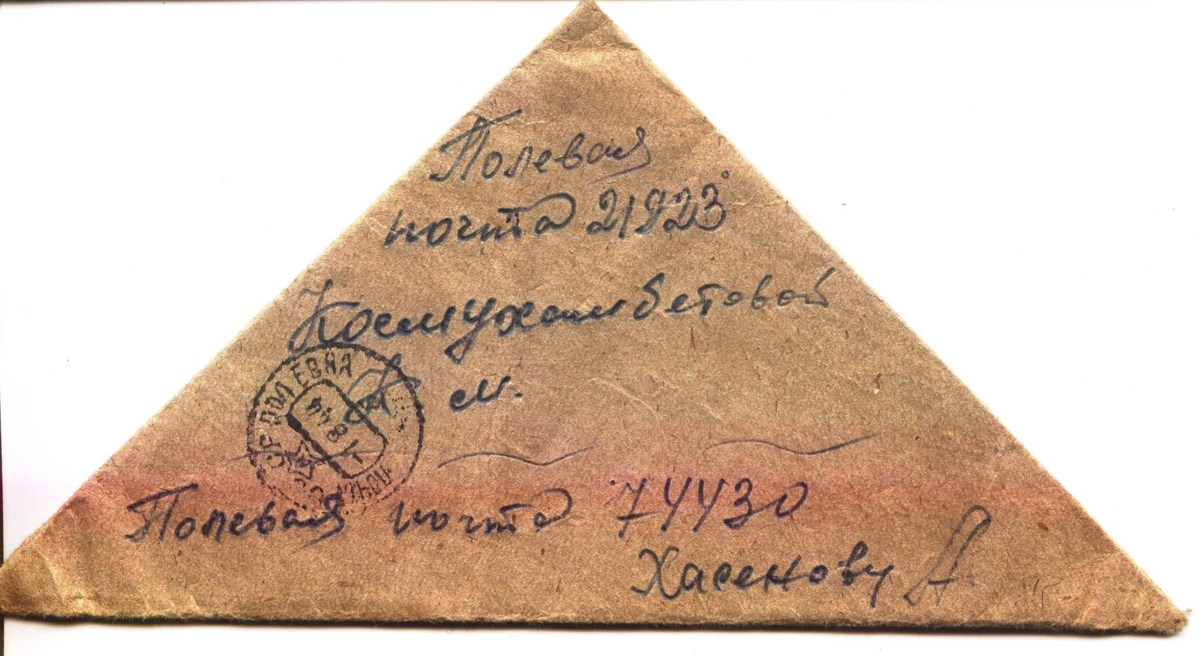 Полевая
почта 21923
Космухамбетовой
К м.
ПОЛЕВАЯ
8 44
Полевая почта 74430
Хасенову А.